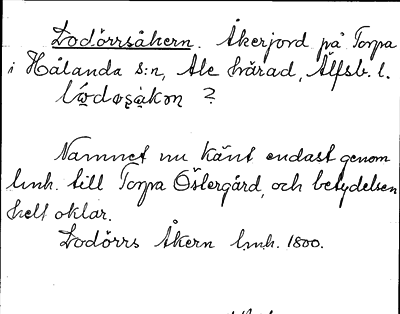 Dodörrsåkern. Åkerjord på Torpa
i Hålanda s:n, Ale härad, Älfsb. l.
?
Namnet nu känt endast genom
lmh. till Torpa Östergård, och betydelsen
helt oklar.
Dodörrs Åkern lmh. 1800.